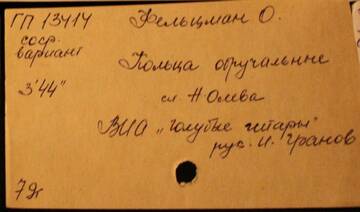 ГП 13414
Фельцман О.
сокр.
вариант
Кольца обручальные
3'44"
сл. Н Олева
ВИА "Голубые гитары"
рук. И. Гранов
79г